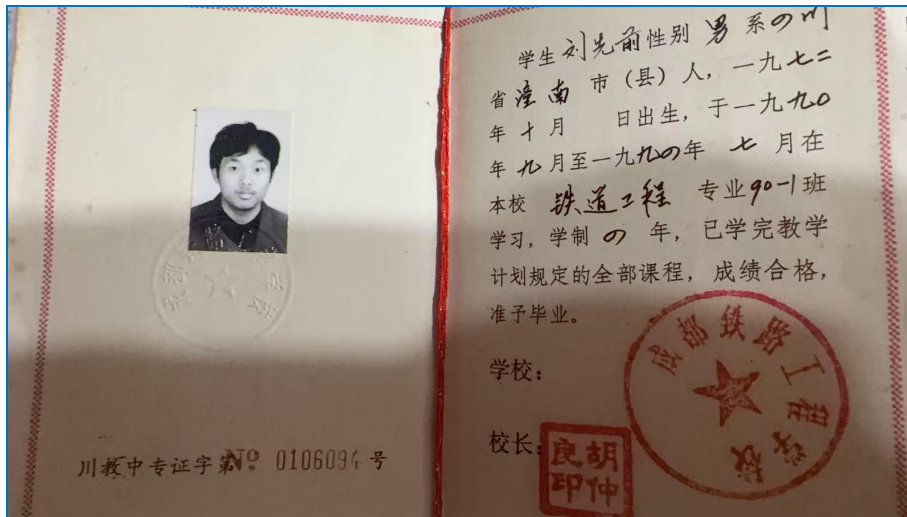 川教中专证字第№ 0106094 号
学生刘先前性别男系四川
省潼南市（县）人，一九七二
年十月 日出生，于一九九〇
年九月至一九九四年七月在
本校铁道工程专业90-1班
学习，学制四年，已学完教学
计划规定的全部课程，成绩合格，
准予毕业。
学校：
成都铁路工程学校
校长：
胡仲
良印